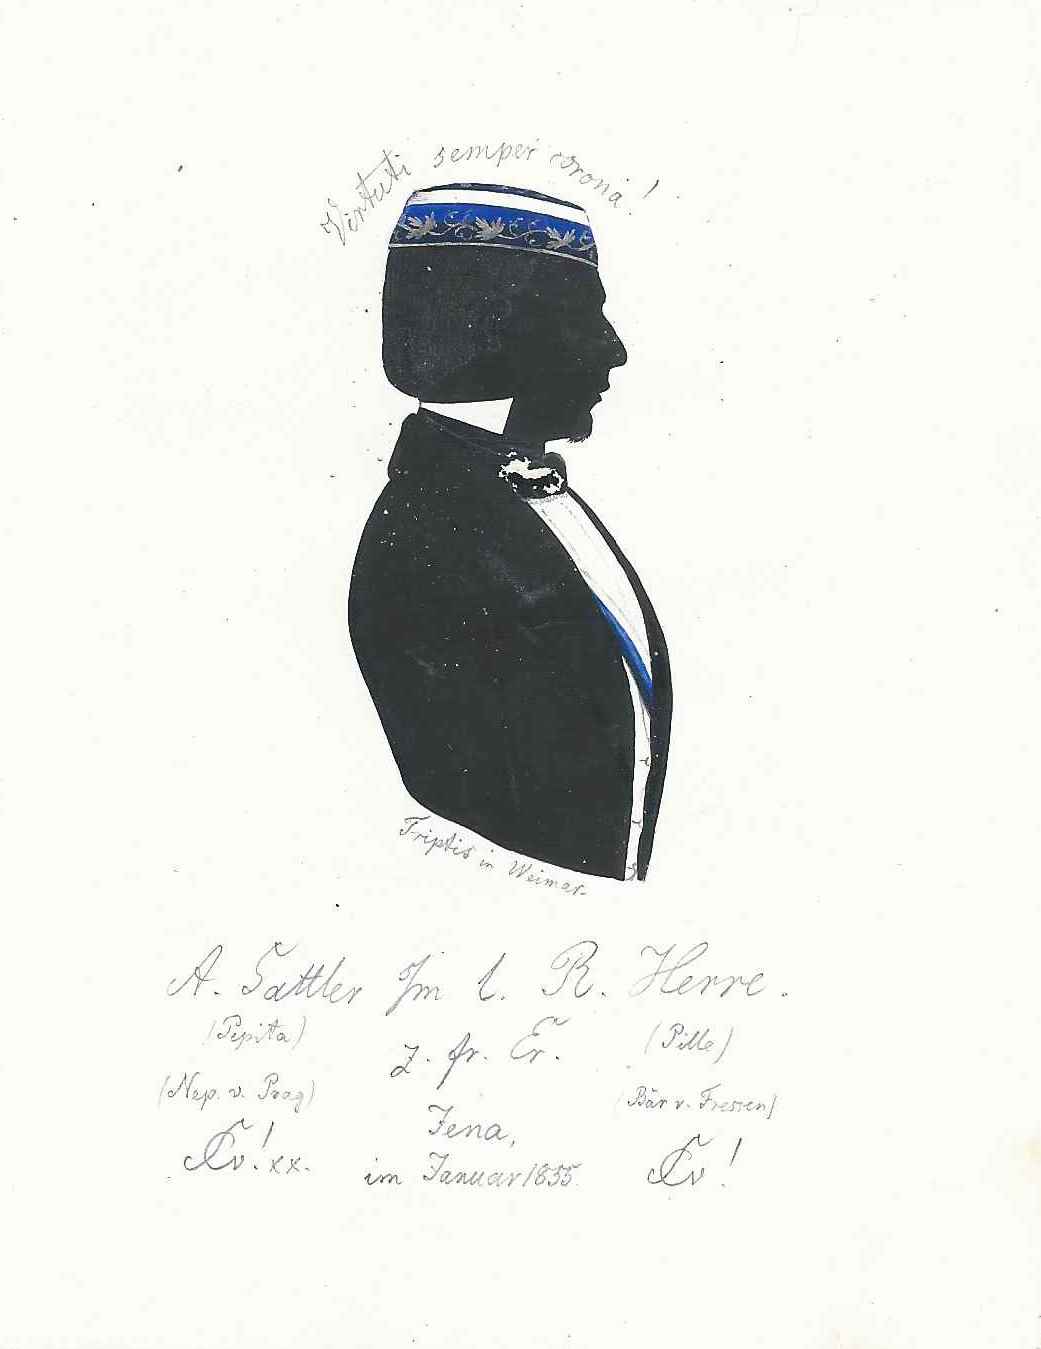 Virtuti semper corona!
Triptis in Weimar.
A. Sattler s/m l. R. Herre.
(Pepita) z. fr. Er. (Pille)
(Nap. v. Prag) (Bär v. Fressen)
Jena,
xx. im Januar 1855.